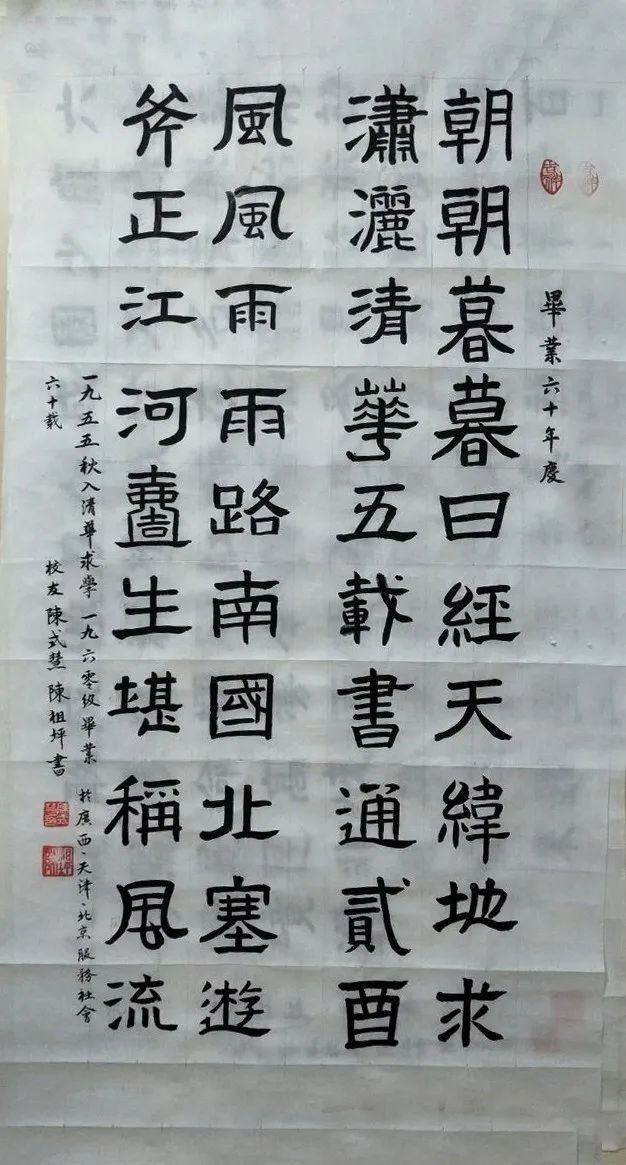 畢業六十年慶
朝朝暮暮日經天緯地求
瀟灑清華五載書通貳酉
風風雨雨路南國北塞遊
斧正江河生堪稱風流
一九五五秋入清華求學 一九六零級畢業 於廣西、天津、北京服務社會
六十載 校友 陳式慧 陳祖坪 書